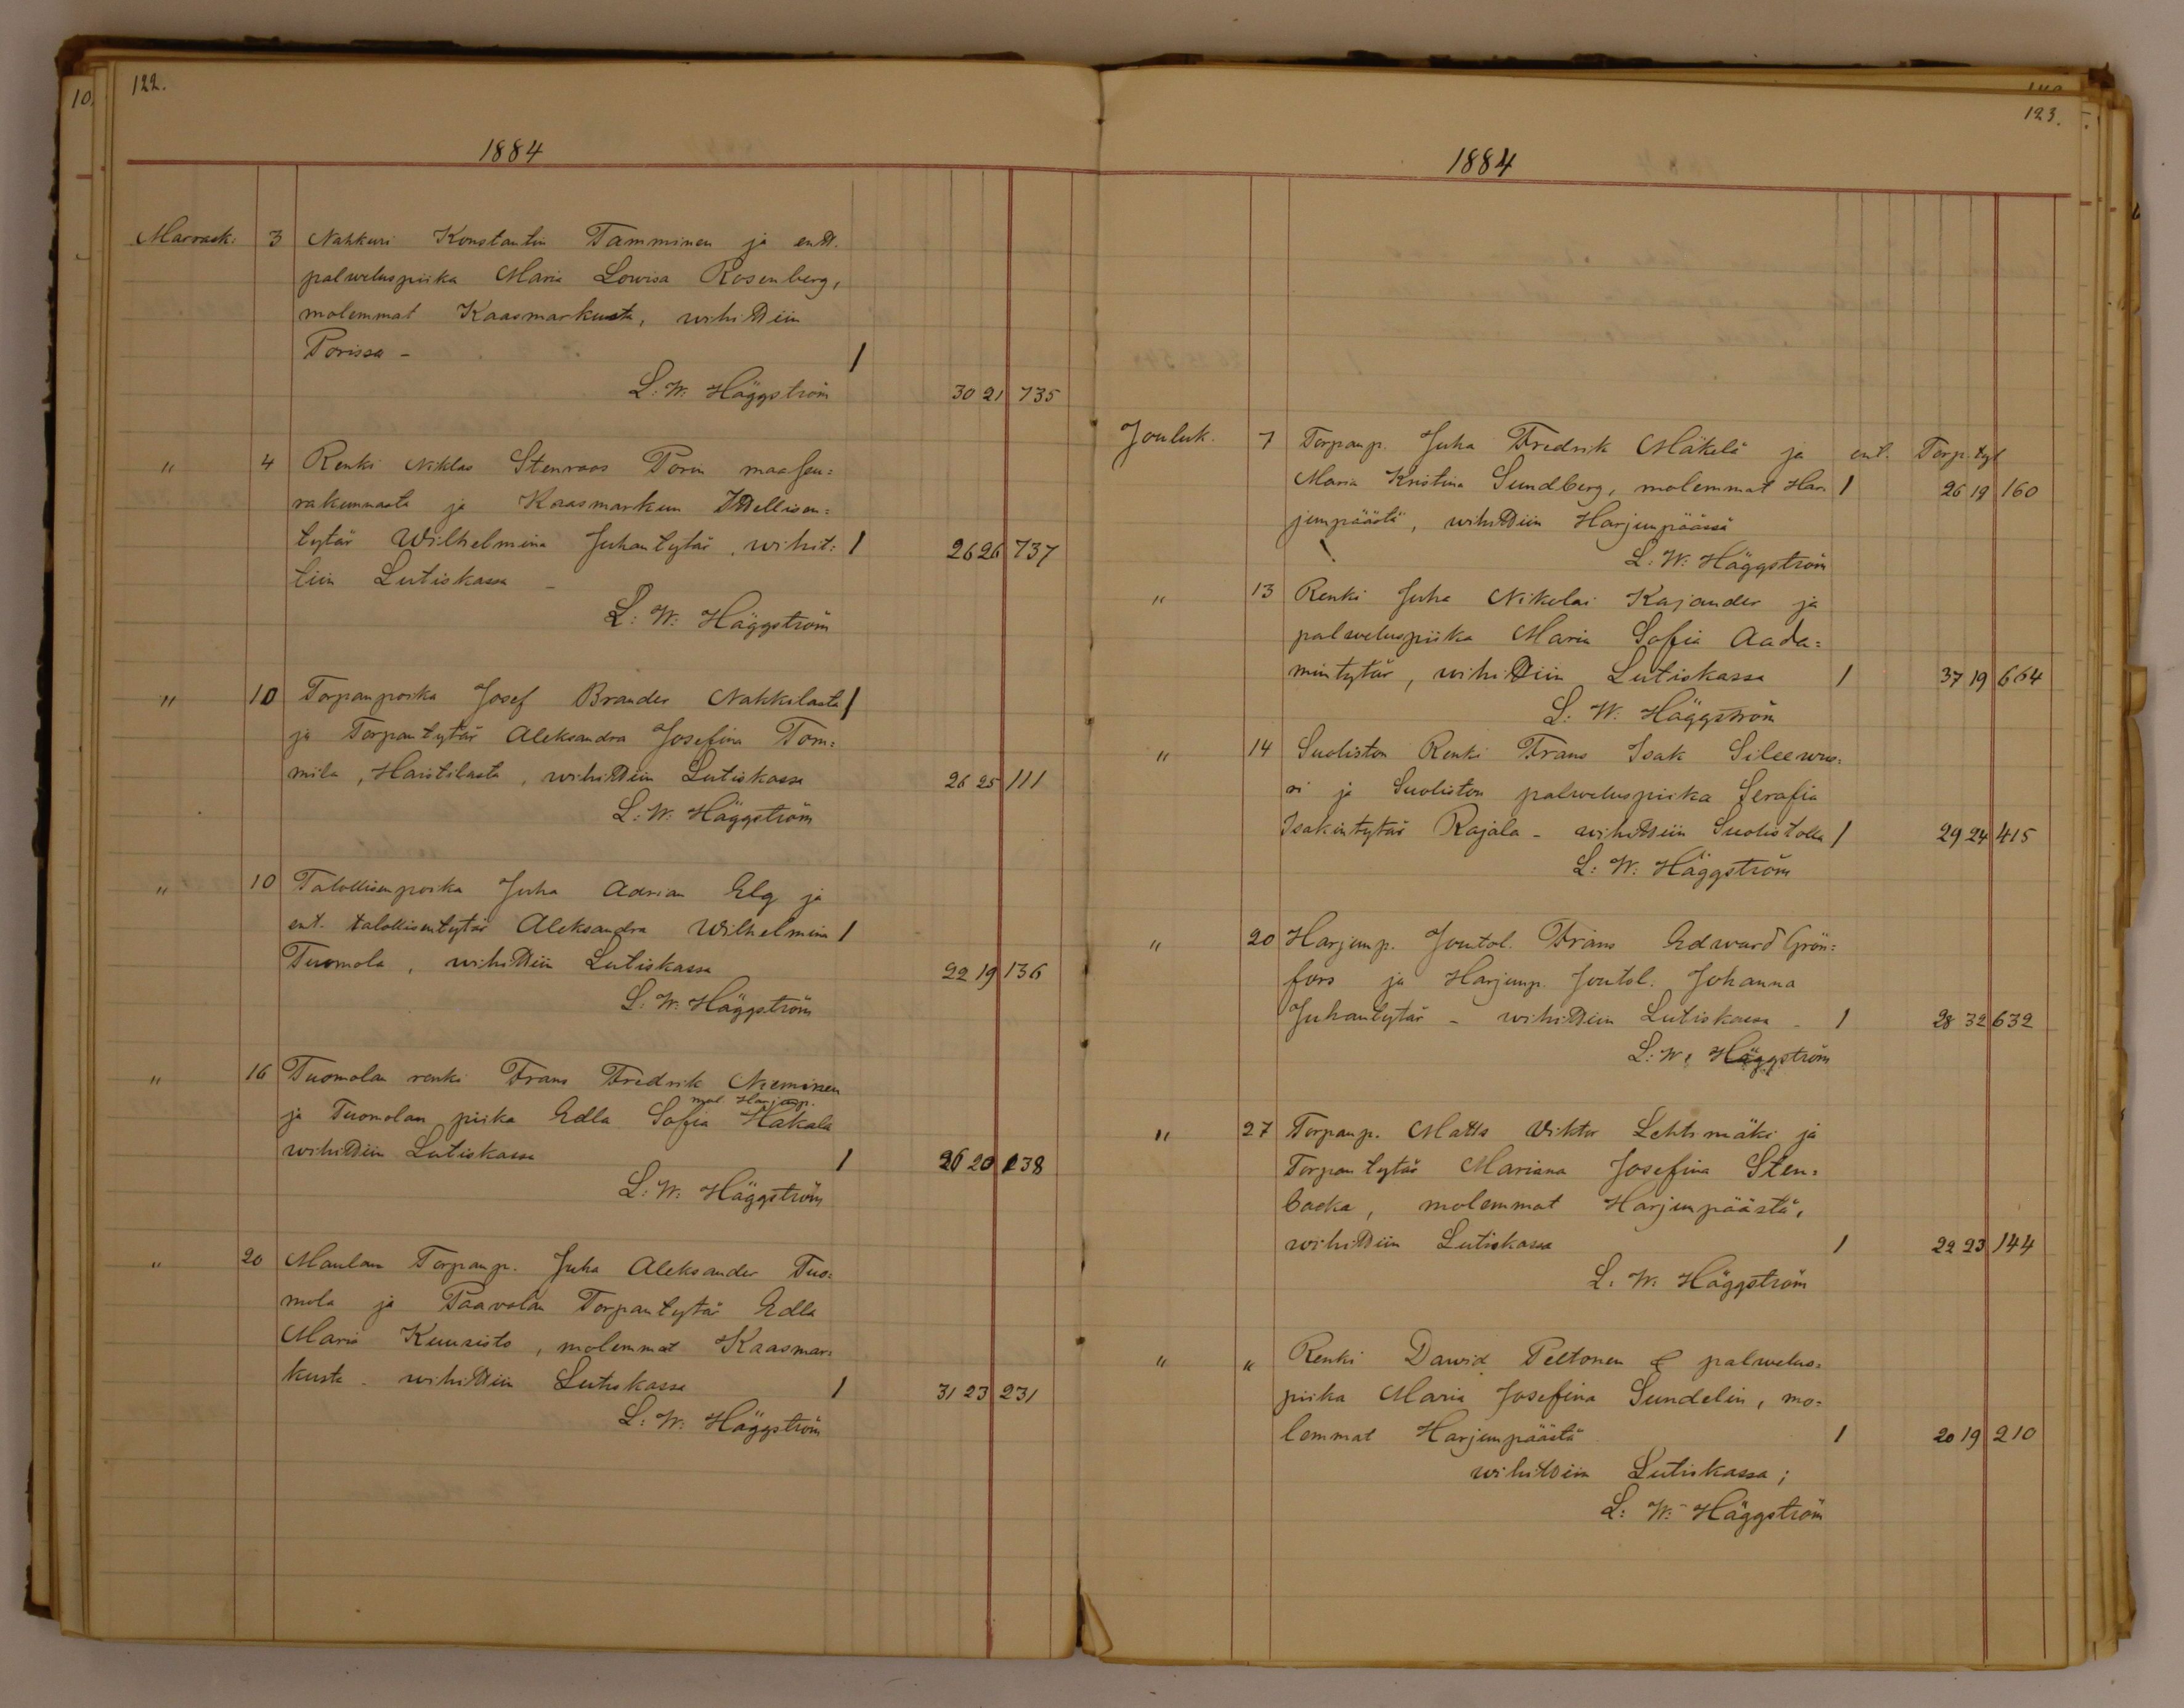 10.
122.
1884
Marrask: 3 Nahkuri Konstantin Tamminen ja entt.
palweluspiika Maria Lowisa Rosenberg,
molemmat Kaasmarkusta, wihittiin
Porissa - 1
L: W: Häggström 30 21 735
" 4 Renki Niklas Stenroos Porin maaseu=
rakunnasta ja Kaasmarkun Itsellisen=
tytär Wilhelmina Juhantytär, wihit: 1 26 26 737
tiin Lutiskassa -
L: W: Häggström
" 10 Torpanpoika Josef Brander Nakkilasta 1
ja Torpantytär Aleksandra Josefina Tom=
mila, Haistilasta, wihittiin Lutiskassa 26 25 111
L: W: Häggström
" 10 Talollisenpoika Juha Adrian Elg ja
ent. talollisentytär Aleksandra Wilhelmina 1
Tuomola, wihittiin Lutiskassa 22 19 136
L: W: Häggström
" 16 Tuomolan renki Frans Fredrik Nieminen
mol. Harjunp.
ja Tuomolan piika Edla Sofia Hakala
wihittiin Lutiskassa 1 26 20 138
L: W: Häggström
" 20 Maulan Torpanp. Juha Aleksander Tuo=
mola ja Paavolan Torpantytär Edla
Maria Kuusisto, molemmat Kaasmar=
kusta - wihittiin Lutiskassa 1 31 23 231
L: W: Häggström
123.
1884
Jouluk. 7 Torpanp. Juha Fredrik Mäkelä ja ent. Torp. tyt
Maria Kristina Sundberg, molemmat Har- 1 26 19 160
junpäästä, wihittiin Harjunpäässä
L: W: Häggström
" 13 Renki Juha Nikolai Kajander ja
palweluspiika Maria Sofia Aada=
mintytär, wihittiin Lutiskassa 1 37 19 664
L: W: Häggström
" 14 Suoliston Renki Frans Isak Sileewuo=
ri ja Suoliston palweluspiika Serafia
Isakintytär Rajala - wihittiin Suolistolla 1 29 24 415
L: W: Häggström
" 20 Harjunp. Joutol. Frans Edward Grön=
fors ja Harjunp. Joutol. Johanna
Juhantytär - wihittiin Lutiskassa - 1 28 32 632
L: W: Häggström
" 27 Torpanp. Matts Viktor Lehtimäki ja
Torpantytär Mariana Josefina Sten=
backa, molemmat Harjunpäästä,
wihittiin Lutiskassa 1 22 23 144
L: W: Häggström
" " Renki Dawid Peltonen & palwelus=
piika Maria Josefina Sundelin, mo=
lemmat Harjunpäästä 1 20 19 210
wihittiin Lutiskassa;
L: W: Häggström